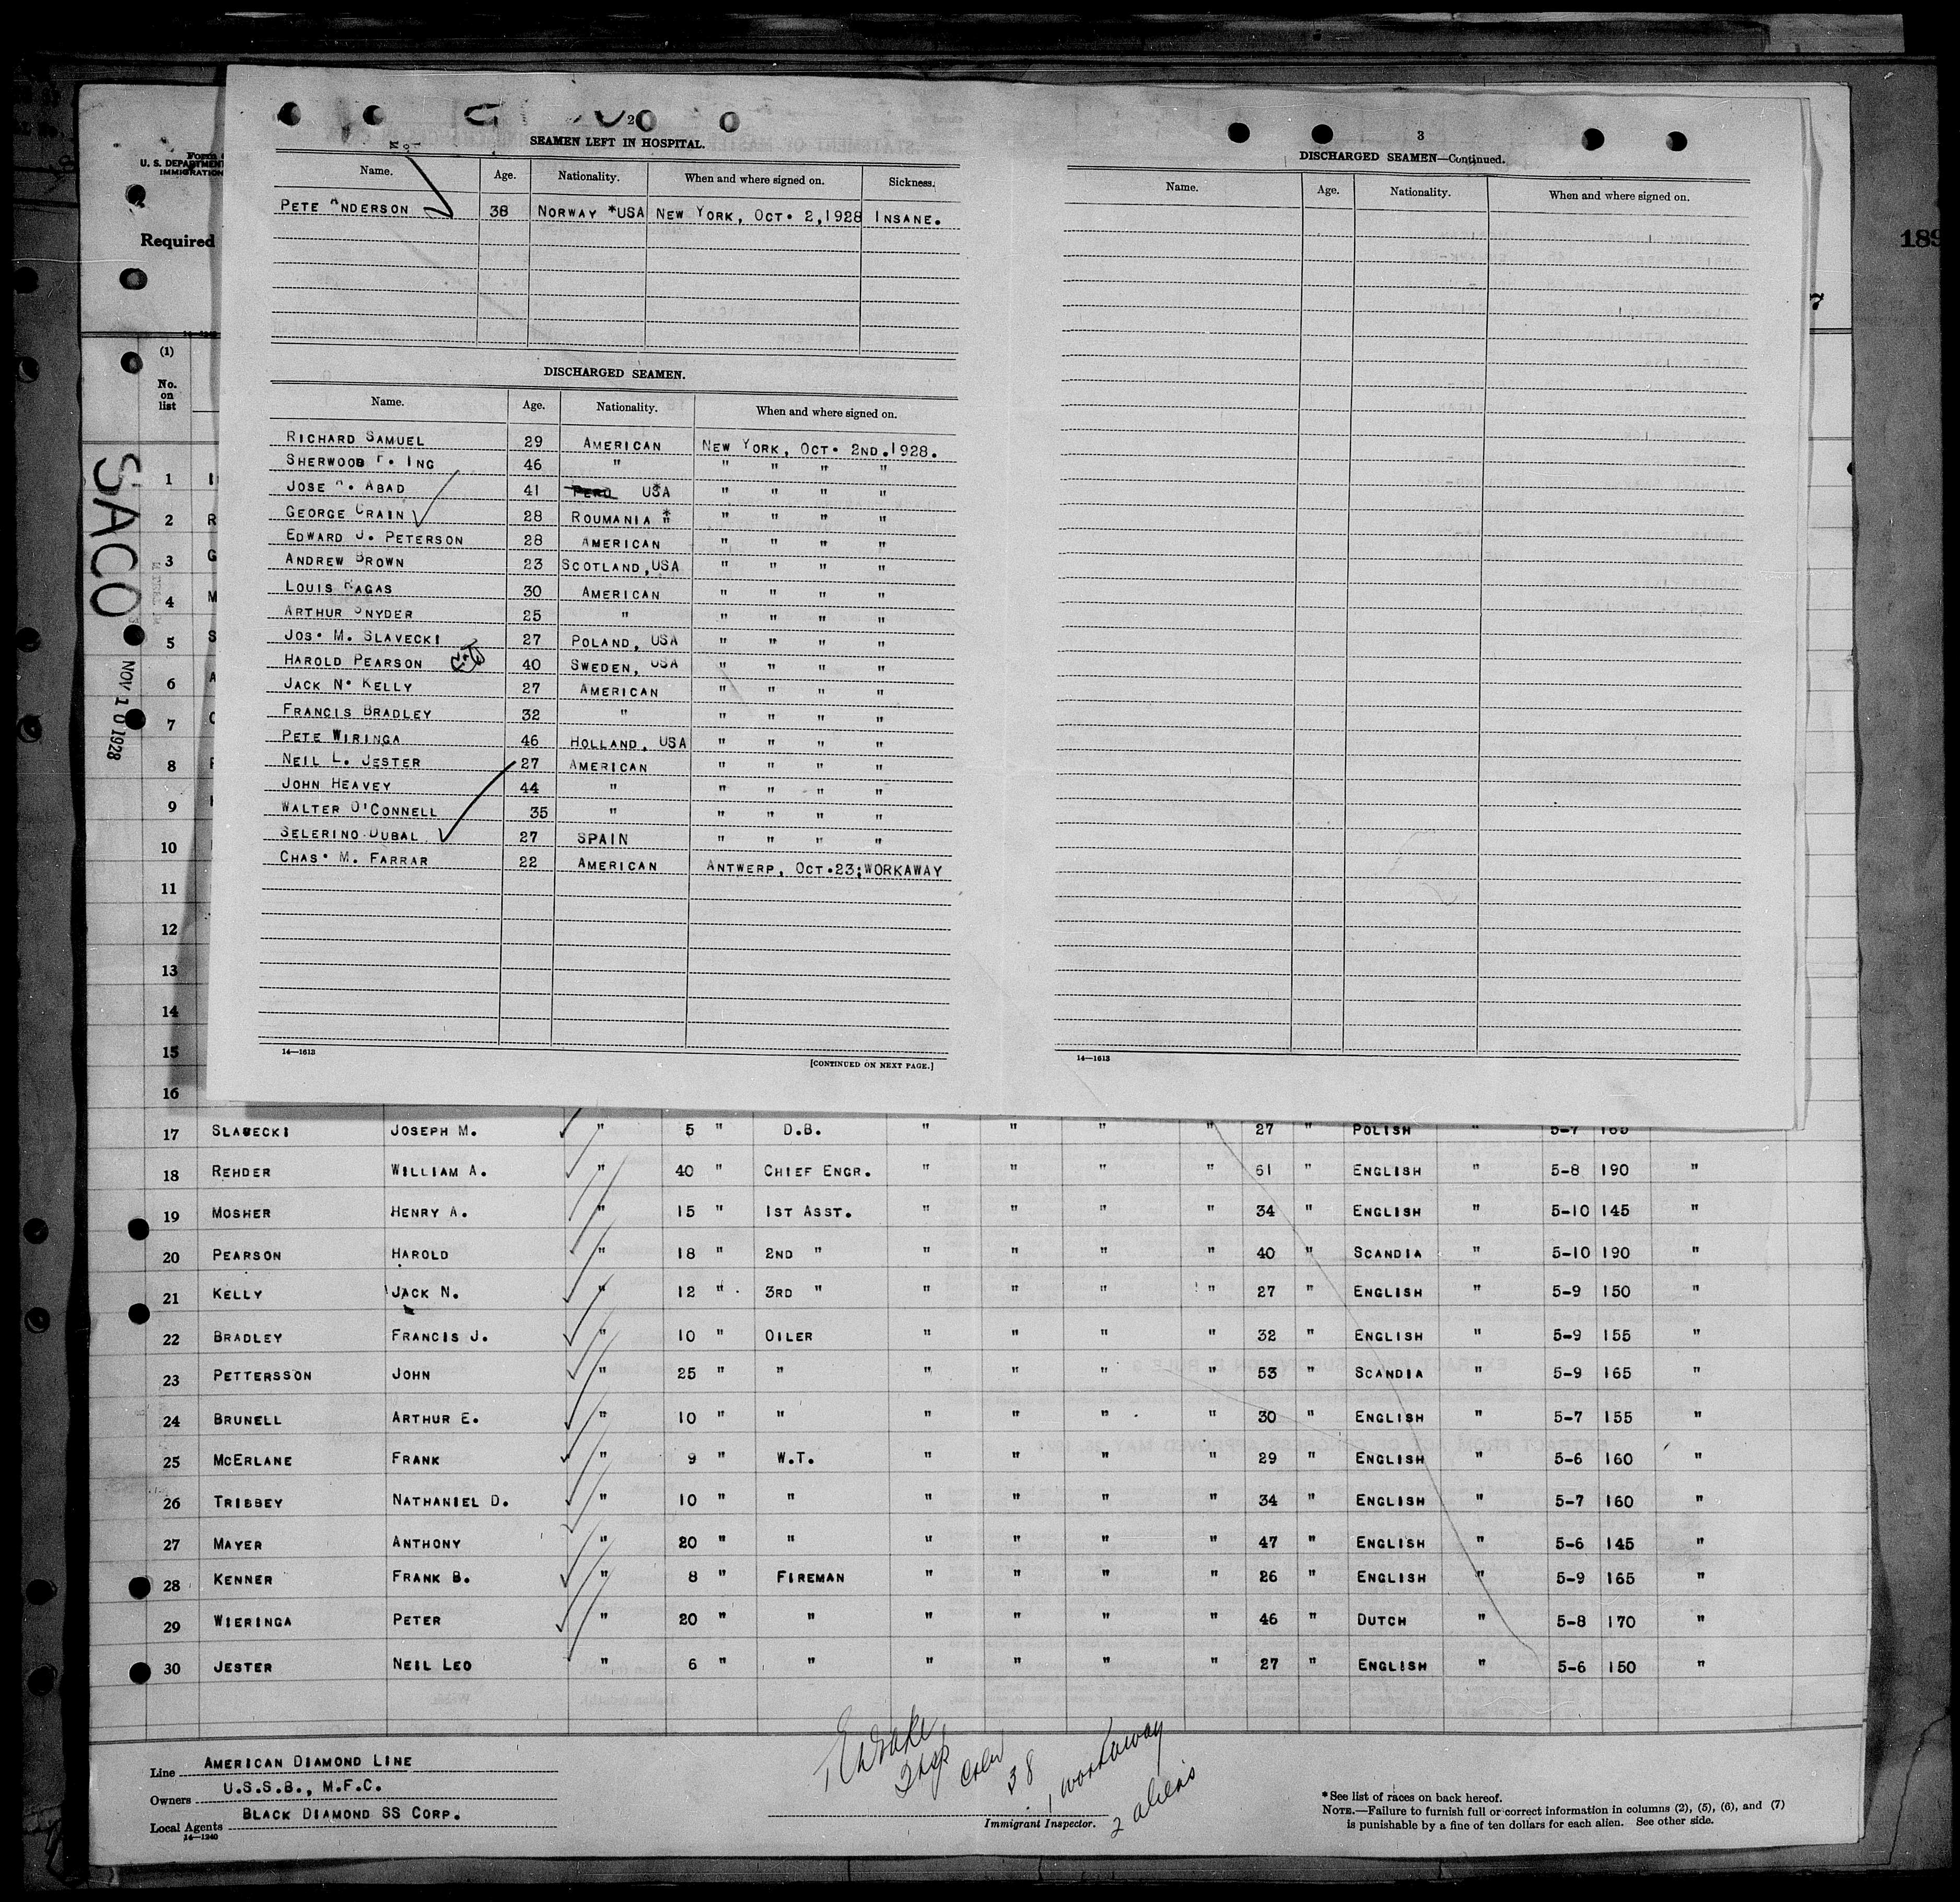 2
SEAMEN LEFT IN HOSPITAL.
Name. Age. Nationality. When and where signed on. Sickness.
PETE ANDERSON 38 NORWAY *USA NEW YORK, OCT. 2,1928 INSANE.
DISCHARGED SEAMEN.
Name. Age. Nationality. When and where signed on.
RICHARD SAMUEL 29 AMERICAN NEW YORK, OCT. 2ND.1928.
SHERWOOD F. ING 46 " " " " "
JOSE A. ABAD 41 PERU USA " " " "
GEORGE CRAIN 28 ROUMANIA * " " " " "
EDWARD J. PETERSON 28 AMERICAN " " " "
ANDREW BROWN 23 SCOTLAND,USA " " " "
LOUIS RAGAS 30 AMERICAN " " " "
ARTHUR SNYDER 25 " " " " "
JOS. M. SLAVECKI 27 POLAND, USA " " " "
HAROLD PEARSON 40 SWEDEN, USA " " " "
JACK N. KELLY 27 AMERICAN " " " "
FRANCIS BRADLEY 32 " " " " "
PETE WIRINGA 46 HOLLAND, USA " " " "
NEIL L. JESTER 27 AMERICAN " " " "
JOHN HEAVEY 44 " " " " "
WALTER O'CONNELL 35 " " " " "
SELERINO DUBAL 27 SPAIN " " " "
CHAS. M. FARRAR 22 AMERICAN ANTWERP, OCT.23;WORKAWAY
14—1613
[CONTINUED ON NEXT PAGE.]
3
DISCHARGED SEAMEN—Continued.
Name. Age. Nationality. When and where signed on.
14—1613
189
7
Form
U. S. DEPARTMENT
IMMIGRATION
Required
(1)
No.
on
list
SACO
NOV 10 1928
1
2 R
3 G
4 M
5 S
6 A
7
8
9
10
11
12
13
14
15
16
17 SLABECKI JOSEPH M. " 5 " D.B. " " " " 27 " POLISH " 5-7 165
18 REHDER WILLIAM A. " 40 " CHIEF ENGR. " " " " 61 " ENGLISH " 5-8 190 "
19 MOSHER HENRY A. " 15 " 1ST ASST. " " " " 34 " ENGLISH " 5-10 145 "
20 PEARSON HAROLD " 18 " 2ND " " " " " 40 " SCANDIA " 5-10 190 "
21 KELLY JACK N. " 12 " 3RD " " " " " 27 " ENGLISH " 5-9 150 "
22 BRADLEY FRANCIS J. " 10 " OILER " " " " 32 " ENGLISH " 5-9 155 "
23 PETTERSSON JOHN " 25 " " " " " " 53 " SCANDIA " 5-9 165 "
24 BRUNELL ARTHUR E. " 10 " " " " " " 30 " ENGLISH " 5-7 155 "
25 MCERLANE FRANK " 9 " W.T. " " " " 29 " ENGLISH " 5-6 160 "
26 TRIBBEY NATHANIEL D. " 10 " " " " " " 34 " ENGLISH " 5-7 160 "
27 MAYER ANTHONY " 20 " " " " " " 47 " ENGLISH " 5-6 145 "
28 KENNER FRANK B. " 8 " FIREMAN " " " " 26 " ENGLISH " 5-9 165 "
29 WIERINGA PETER " 20 " " " " " " 46 " DUTCH " 5-8 170 "
30 JESTER NEIL LEO " 6 " " " " " " 27 " ENGLISH " 5-6 150 "
Line AMERICAN DIAMOND LINE
Owners U.S.S.B., M.F.C.
Local Agents BLACK DIAMOND SS CORP.
14—1240
38
1 workaway
2 aliens
Immigrant Inspector.
*See list of races on back hereof.
NOTE.—Failure to furnish full or correct information in columns (2), (5), (6), and (7)
is punishable by a fine of ten dollars for each alien. See other side.